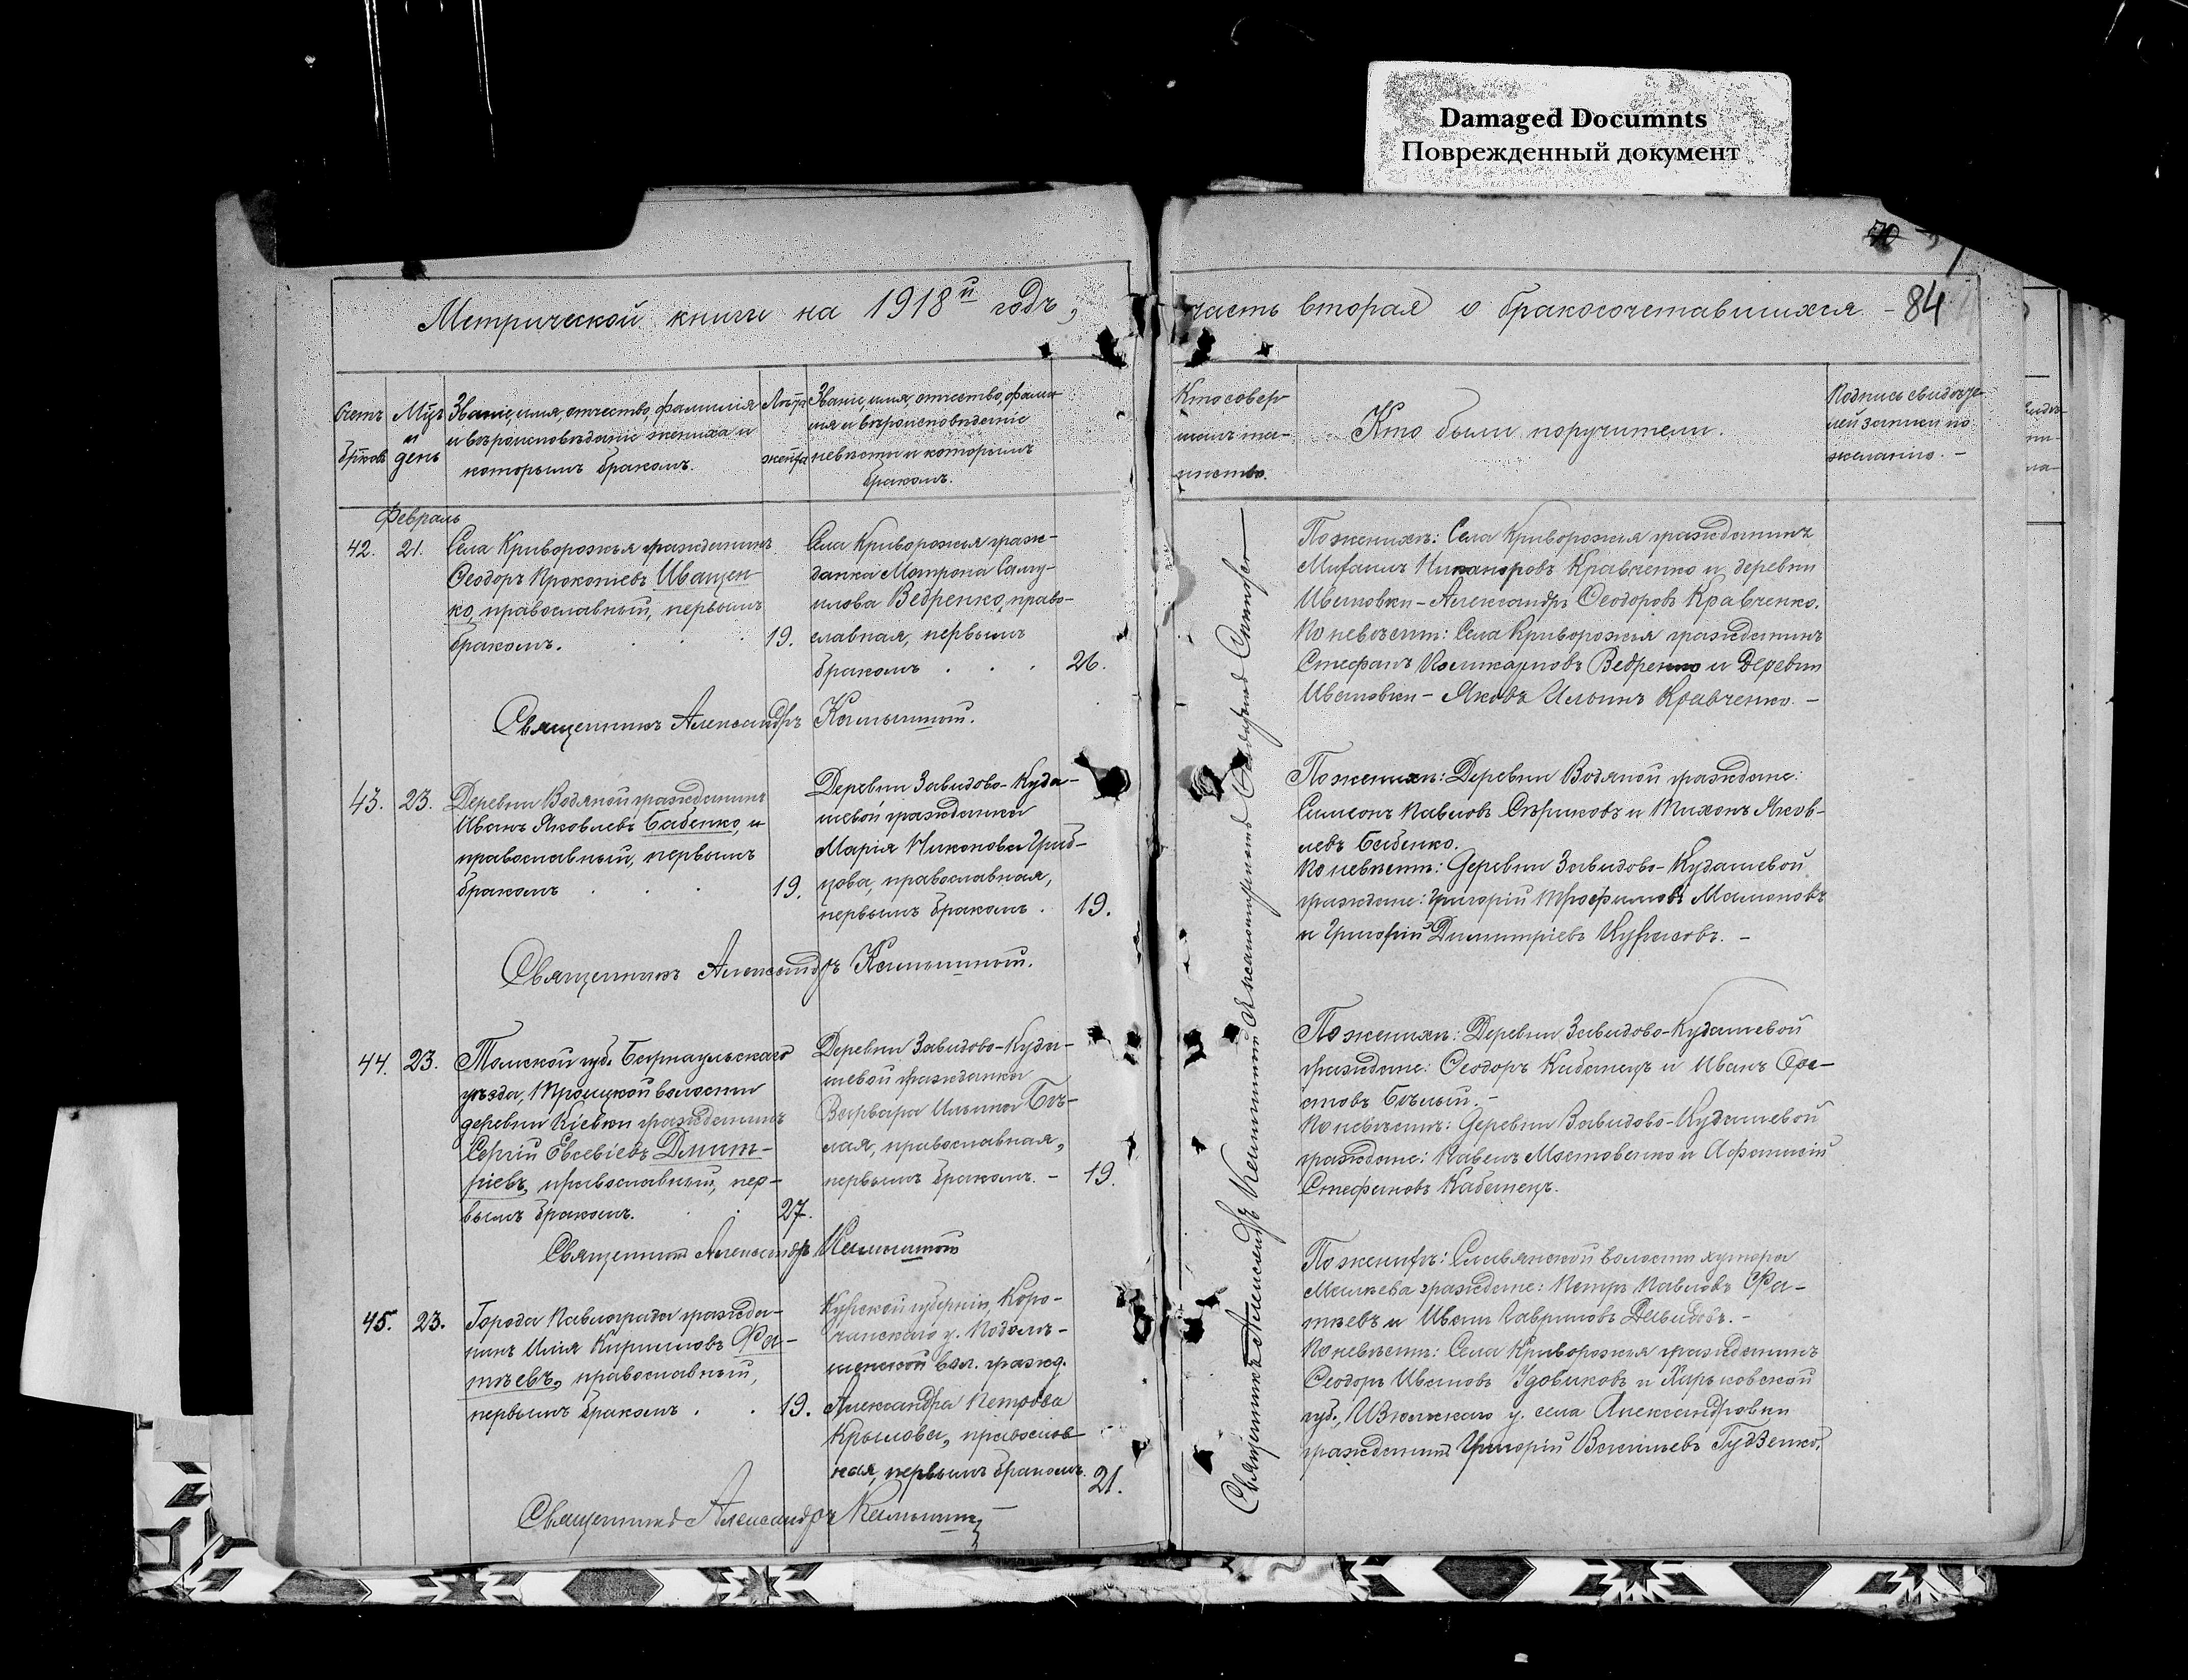 Damaged Documnts
Поврежденный документ
Метрической книги на 1918й годъ,
часть вторая о бракосочетавшихся - 84
Счетъ браковъ
Мцъ и день
Званіе, имя, отчество, фамилія
и вѣроисповѣданіе жениха и
которымъ бракомъ.
Лѣта жениха
Званіе, имя, отчество, фами-
лія и вѣроисповѣданіе
невѣсты и которымъ
бракомъ.
Кто совер-
шилъ та-
инство.
Кто были поручители.
Подпись свидѣте-
лей записи по
желанію. -
Февраль
42. 21.
Села Криворожья гражданинъ
Ѳеодоръ Прокопіевъ Иващен-
ко, православный, первымъ
бракомъ. 19.
Села Криворожья граж-
данка Матрона Саму-
илова Ведренко, право-
славная, первымъ
бракомъ . . . 26.
Священникъ Александръ
По женихѣ: Села Криворожья гражданинъ
Михаилъ Никаноровъ Кравченко и деревни
Ивановки - Александръ Ѳеодоровъ Кравченко.
По невѣстѣ: Села Криворожья гражданинъ
Стефанъ Ведренко и деревни
Ивановки - Яковъ Ильинъ Кравченко. -
43. 23.
Деревни Водяной гражданинъ
Иванъ Яковлевъ Бабенко, и
православный, первымъ
бракомъ . . . 19.
Деревни Завидово-Куда-
шевой гражданка
Марія Никонова Приб-
цова, православная,
первымъ бракомъ . 19.
Священникъ Александръ
По женихѣ: Деревни Водяной граждане:
Симеонъ Павловъ Сѣриковъ и Тихонъ Яков-
левъ Бабенко.
По невѣстѣ: Деревни Завидово-Кудашевой
граждане: Григорій Трофимовъ Мамоновъ
и Григорій Димитріевъ
44. 23.
Томской губ. Барнаульскаго
уѣзда, Троицкой волости
деревни Кіевки гражданинъ
Сергій Евсевіевъ Дмит-
ріевъ, православный, пер-
вымъ бракомъ. 27.
Деревни Завидово-Куда-
шевой гражданка
Варвара Ильина Бѣ-
лая, православная,
первымъ бракомъ. - 19.
Священникъ Александръ
По женихѣ: Деревни Завидово-Кудашевой
граждане: Ѳеодоръ Кабанецъ и Иванъ
Бѣлый. -
По невѣстѣ: Деревни Завидово-Кудашевой
граждане: Павелъ Мостовенко и Аѳанасій
Стефановъ Кабанецъ.
45. 23.
Города Павлограда гражда-
нинъ Илія Кирилловъ Фа-
тѣевъ, православный,
первымъ бракомъ . . 19.
Курской губерніи, Коро-
чанскаго у.
вол. гражд.
Александра Петрова
Крылова, православ-
ная, первымъ бракомъ. 21.
Священникъ Александръ
По женихѣ: Славянской волости хутора
граждане: Петръ Павловъ Фа-
тѣевъ и Иванъ Гавриловъ Давыдовъ. -
По невѣстѣ: Села Криворожья гражданинъ
Ѳеодоръ Ивановъ Удовиковъ и Харьковской
губ., Изюмскаго у. села Александровки
гражданинъ Григорій Васильевъ Гудзенко.
Священникъ Александръ